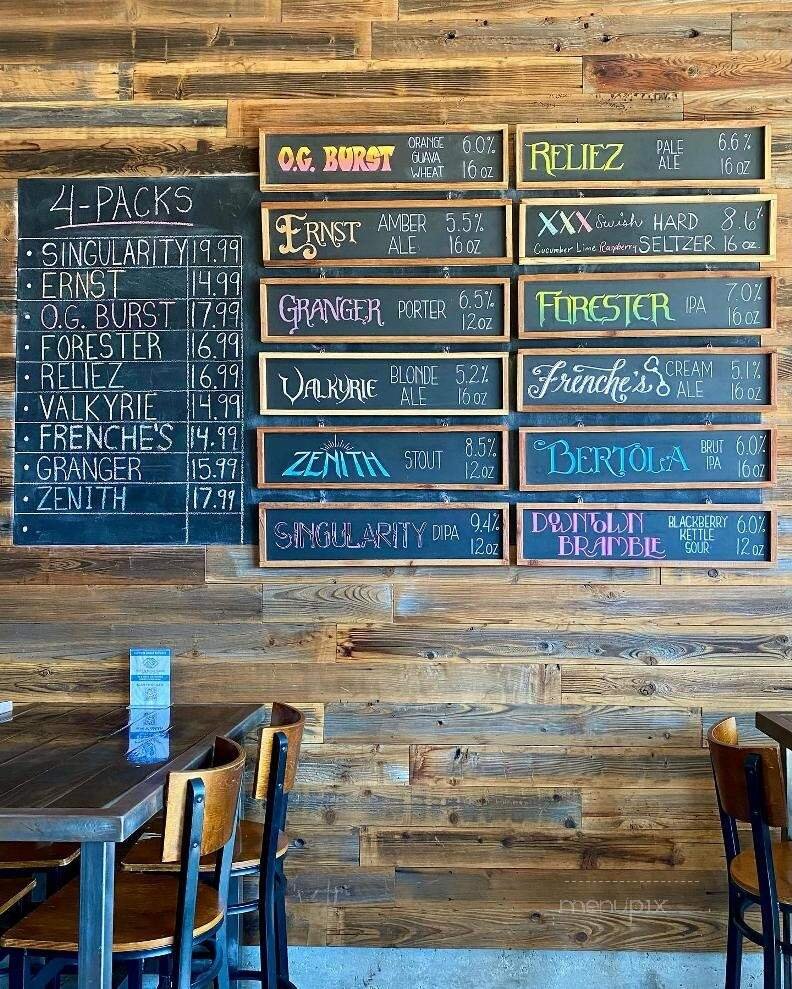 4-PACKS
· SINGULARITY 19.99
· ERNST 14.99
· O.G. BURST 17.99
· FORESTER 16.99
· RELIEZ 16.99
· VALKYRIE 14.99
· FRENCHE'S 14.99
· GRANGER 15.99
· ZENITH 17.99
O.G. BURST
ORANGE
GUAVA
WHEAT
6.0%
16 oz
ERNST
AMBER
ALE
5.5%
16 oz
GRANGER
PORTER
6.5%
12 oz
VALKYRIE
BLONDE
ALE
5.2%
16 oz
ZENITH
STOUT
8.5%
12 oz
SINGULARITY
DIPA
9.4%
12 oz
RELIEZ
PALE
ALE
6.6%
16 oz
XXX Swish HARD 8.6%
Cucumber Lime Raspberry SELTZER 16 oz.
FORESTER
IPA
7.0%
16 oz
Frenche's
CREAM
ALE
5.1%
16 oz
BERTOLA
BRUT
IPA
6.0%
16 oz
DOWNTOWN
BRAMBLE
BLACKBERRY
KETTLE
SOUR
6.0%
12 oz
menupix